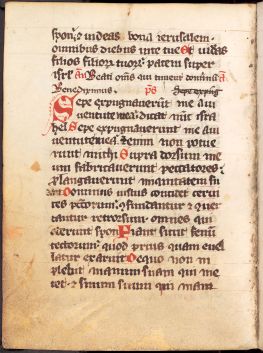 & uideas bona ierusalem:
omnibus diebus uite tue Et uidas
filios filiorū tuorū: patem super
isrł A Beati oms qui timent dominū A
Benediximus. ps Sepe expug
Sepe expugnauerūt me a iu
uentute mea: dicat nūc isra
hel Sepe expugnauerunt me a iu
uentute mea: Etenim non potue
runt michi Supra dorsum me
um fabricauerunt peccatores:
plongauerunt iniquitatem su
am Dominus iustus cerui
ces pctorum: 9fundantur & 9uer
tantur retrorsum omnes qui
oderunt syon Fiant sicut fenū
tectorum: quod prius quam euel
latur exaruit De quo non im
plebit manum suam qui me
tet: & sinum suum qui mani